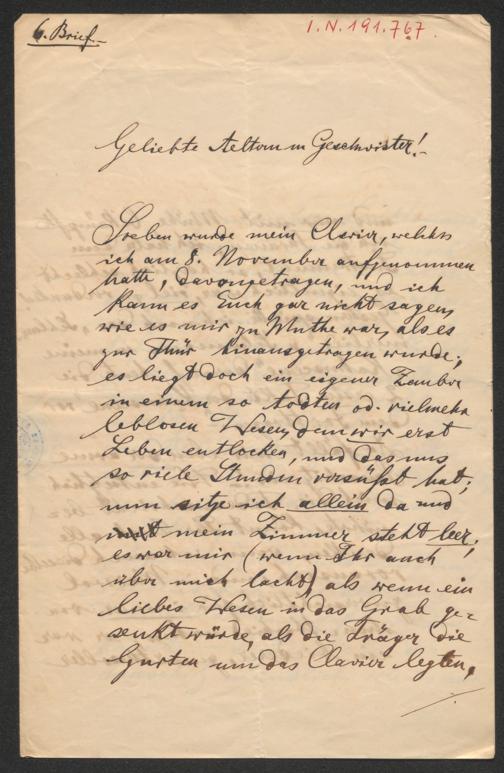 6. Brief
I.N.191.767.
Geliebte Aeltern u Geschwister!
Soeben wurde mein Clavier, welches
ich am 8. November aufgenommen
hatte, davongetragen, und ich
kann es Euch gar nicht sagen,
wie es mir zu Muthe war, als es
zur Thür hinausgetragen wurde;
es liegt doch ein eigener Zauber
in einem so todten od. vielmehr
leblosen Wesen, dem wir erst
Leben entlocken, und das uns
so viele Stunden versüßt hat;
nun sitze ich allein da und
mein Zimmer steht leer;
es war mir (wenn Ihr auch
über mich lacht) als wenn ein
liebes Wesen in das Grab ge-
senkt würde, als die Träger die
Gurten um das Clavier legten,